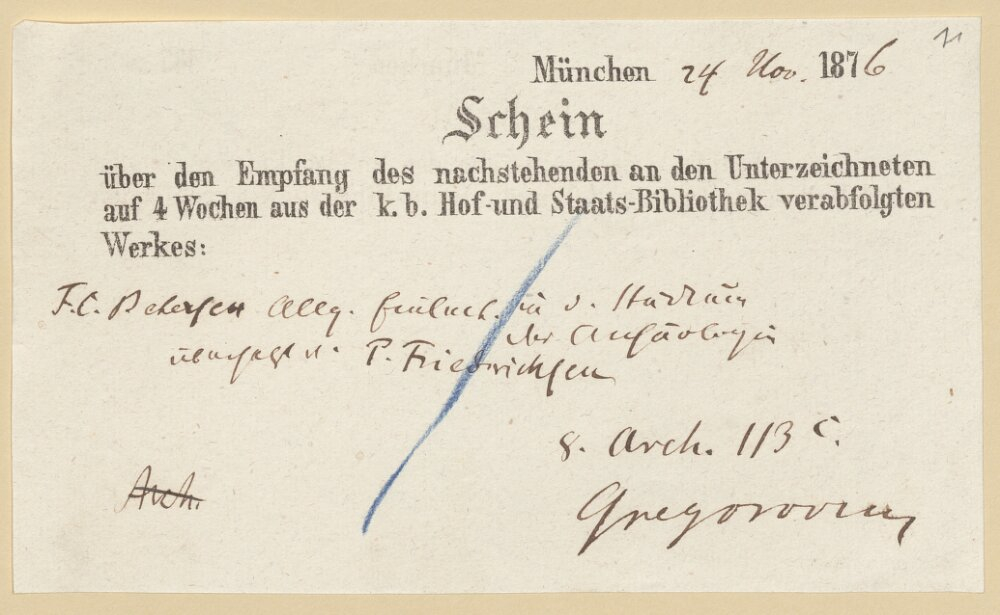 München 24 Nov. 1876
Schein
über den Empfang des nachstehenden an den Unterzeichneten
auf 4 Wochen aus der k. b. Hof- und Staats-Bibliothek verabfolgten
Werkes:
F. C. Petersen Allg. Einleit. in d. Studium
der Archäologie
übersetzt v. P. Friedrichsen
8. Arch. 113 c.
Arch.
Gregorovius